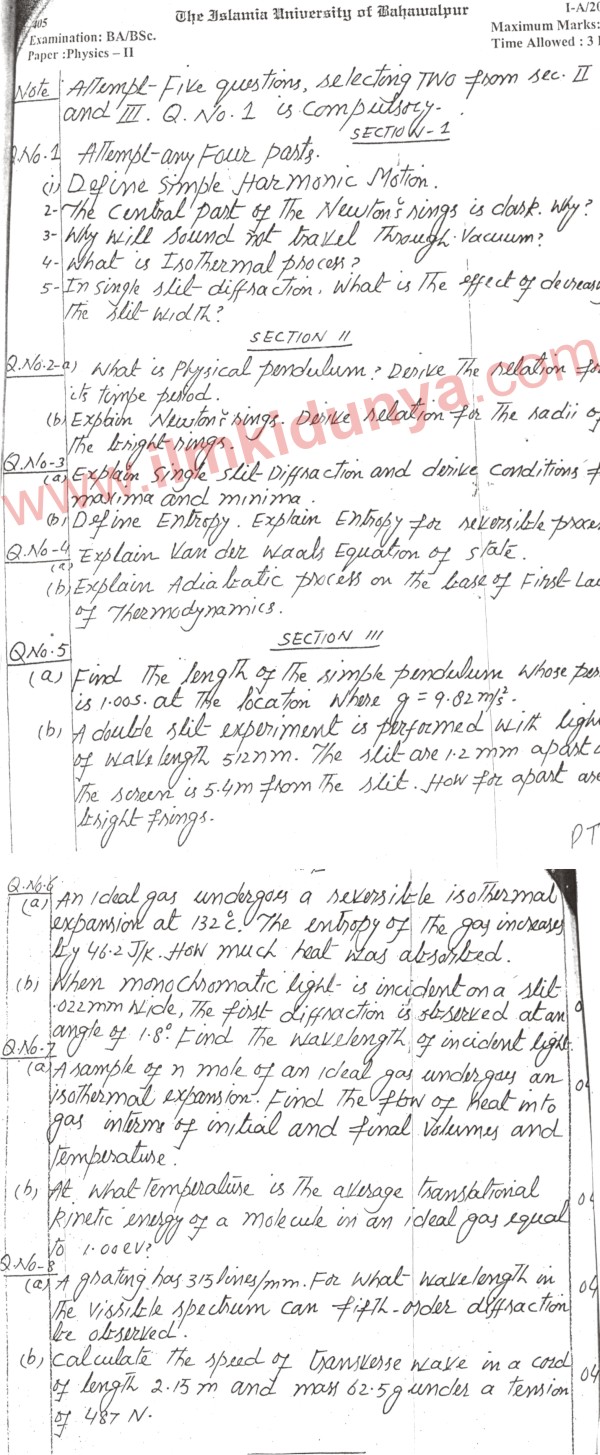 405
The Islamia University of Bahawalpur
I-A/20
Examination: BA/BSc.
Maximum Marks:
Paper :Physics – II
Time Allowed : 3
Note Attempt Five questions, selecting TWO from sec. II
and III. Q. No. 1 is compulsory.
SECTION-1
Q.No.1 Attempt any Four parts.
(i) Define simple Harmonic Motion.
2- The central part of the Newton's rings is dark. Why?
3- Why will sound not travel through vacuum?
4- What is Isothermal process?
5- In single slit diffraction, what is the effect of decreas
the slit width?
SECTION II
Q.No.2-a) What is Physical pendulum? Derive the relation for
its timpe period.
(b) Explain Newton's rings. Derive relation for the radii of
the bright rings.
www.ilmkidunya.com
Q.No-3
(a) Explain single slit Diffraction and derive conditions f
maxima and minima.
(b) Define Entropy. Explain Entropy for reversible proces
Q.No-4
(a) Explain Van der Waals Equation of state.
(b) Explain Adiabatic process on the base of First-Law
of Thermodynamics.
SECTION III
Q.No.5
(a) Find the length of the simple pendulum whose per
is 1.00s. at the location where g = 9.82 m/s².
(b) A double slit experiment is performed with light
of wavelength 512nm. The slit are 1.2 mm apart
the screen is 5.4m from the slit. How for apart are
bright frings.
PT
Q.No.6
(a) An ideal gas undergoes a reversible isothermal
expansion at 132°C. The entropy of the gas increases
by 46.2 J/K. How much heat was absorbed.
(b) When monochromatic light is incident on a slit
.022mm wide, The first diffraction is observed at an
angle of 1.8° Find the wavelength of incident light.
Q.No-7
(a) A sample of n mole of an ideal gas undergoes an
isothermal expansion. Find the flow of heat into
gas interms of initial and final volumes and
temperature.
04
(b) At what temperature is the average translational
kinetic energy of a molecule in an ideal gas equal
to 1.00 eV?
04
Q.No-8
(a) A grating has 315 lines/mm. For what wavelength in
the vissible spectrum can fifth-order diffraction
be observed.
04
(b) Calculate the speed of transverse wave in a cord
of length 2.15 m and mass 62.5g under a tension
of 487 N.
04